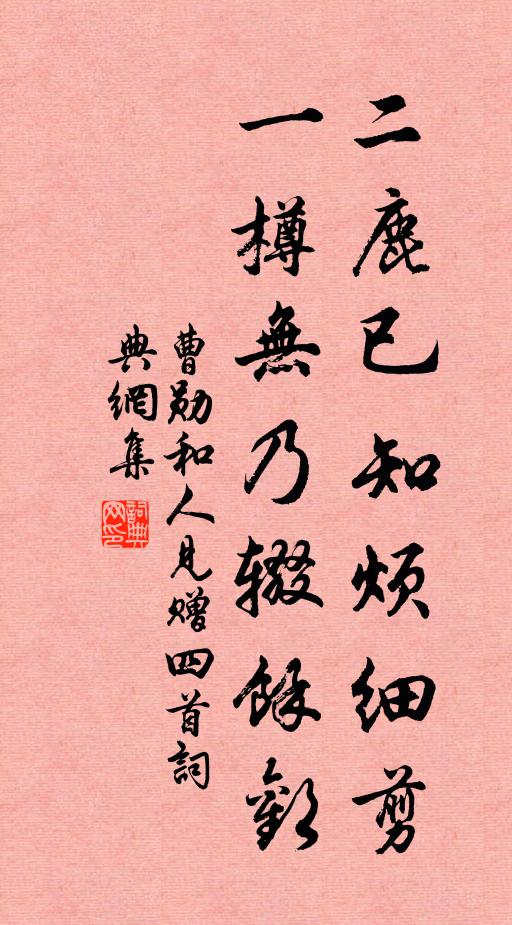 二鹿已知烦细剪
一樽無乃辍餘歡
曹勛和人見赠四首詞
典網集
詞典网印